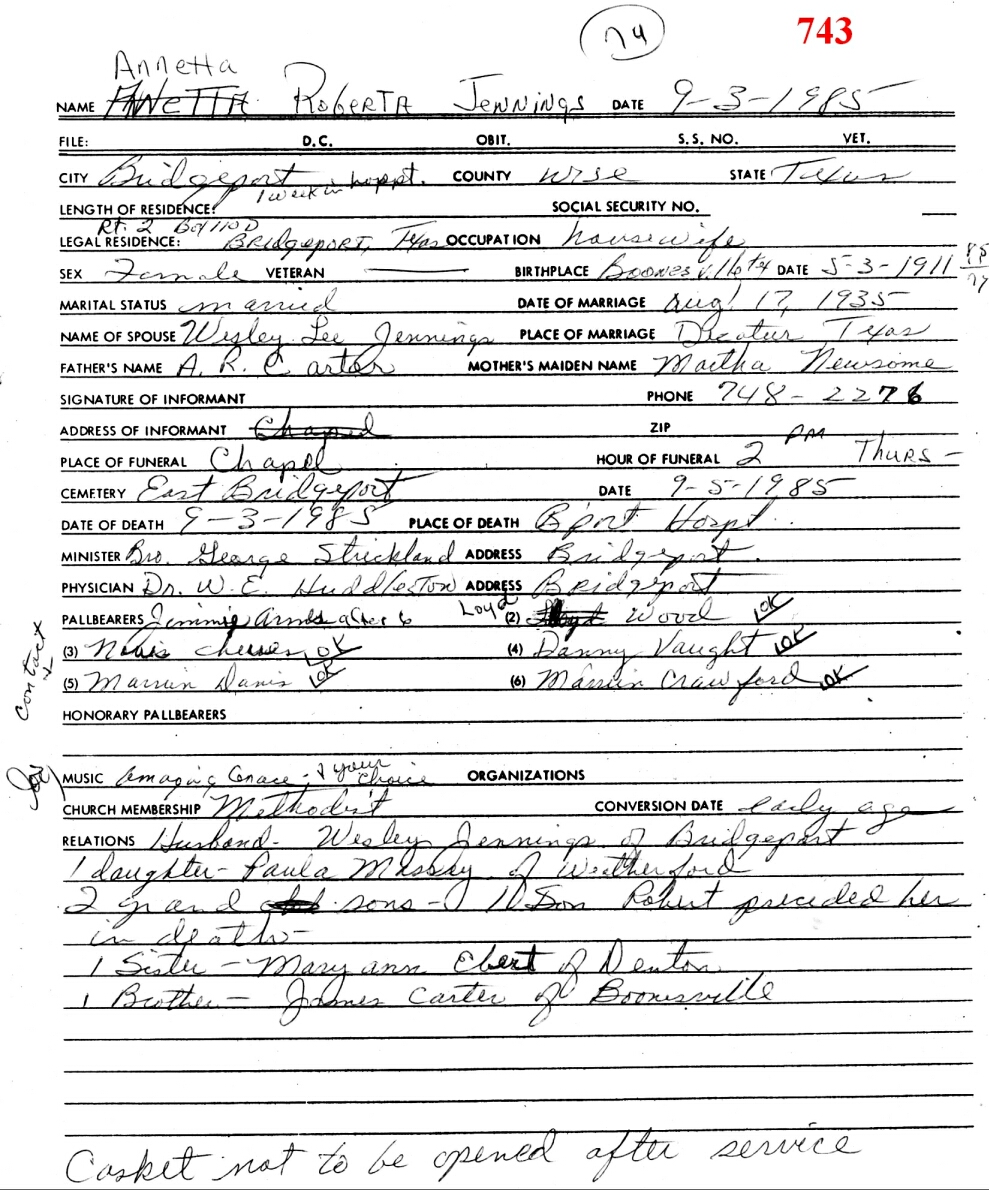 743
74
Annetta
NAME ANNETTA ROBERTA JENNINGS DATE 9-3-1985
FILE: D.C. OBIT. S.S. NO. VET.
CITY Bridgeport 1 week in hospt. COUNTY Wise STATE Texas
LENGTH OF RESIDENCE: SOCIAL SECURITY NO.
Rt. 2 Box 110 D
LEGAL RESIDENCE: BRidgepoRt, Texas OCCUPATION housewife
SEX Female VETERAN BIRTHPLACE Boonesville tx DATE 5-3-1911
85
MARITAL STATUS married DATE OF MARRIAGE Aug 17, 1935
NAME OF SPOUSE Wesley Lee Jennings PLACE OF MARRIAGE Decatur Texas
FATHER'S NAME A. R. Carter MOTHER'S MAIDEN NAME Martha Newsome
SIGNATURE OF INFORMANT PHONE 748-2276
ADDRESS OF INFORMANT Chapel ZIP
PLACE OF FUNERAL Chapel HOUR OF FUNERAL 2 PM Thurs-
CEMETERY East Bridgeport DATE 9-5-1985
DATE OF DEATH 9-3-1985 PLACE OF DEATH Bport Hospt.
MINISTER Bro. George Strickland ADDRESS Bridgeport.
PHYSICIAN Dr. W. E. Huddleston ADDRESS Bridgeport
PALLBEARERS Jimmie after 6 (2) Loyd Wood OK
(3) OK (4) Danny Vaught OK
(5) Marvin Davis OK (6) Marvin Crawford OK
Contact
HONORARY PALLBEARERS
MUSIC Amazing Grace - & your choice ORGANIZATIONS
CHURCH MEMBERSHIP Methodist CONVERSION DATE early age
RELATIONS Husband- Wesley Jennings of Bridgeport
1 daughter- Paula Massey of Weatherford
2 grand sons - 1 Son Robert preceded her
in death-
1 Sister - Mary ann Ebert of Denton
1 Brother - James Carter of Boonesville
Casket not to be opened after service